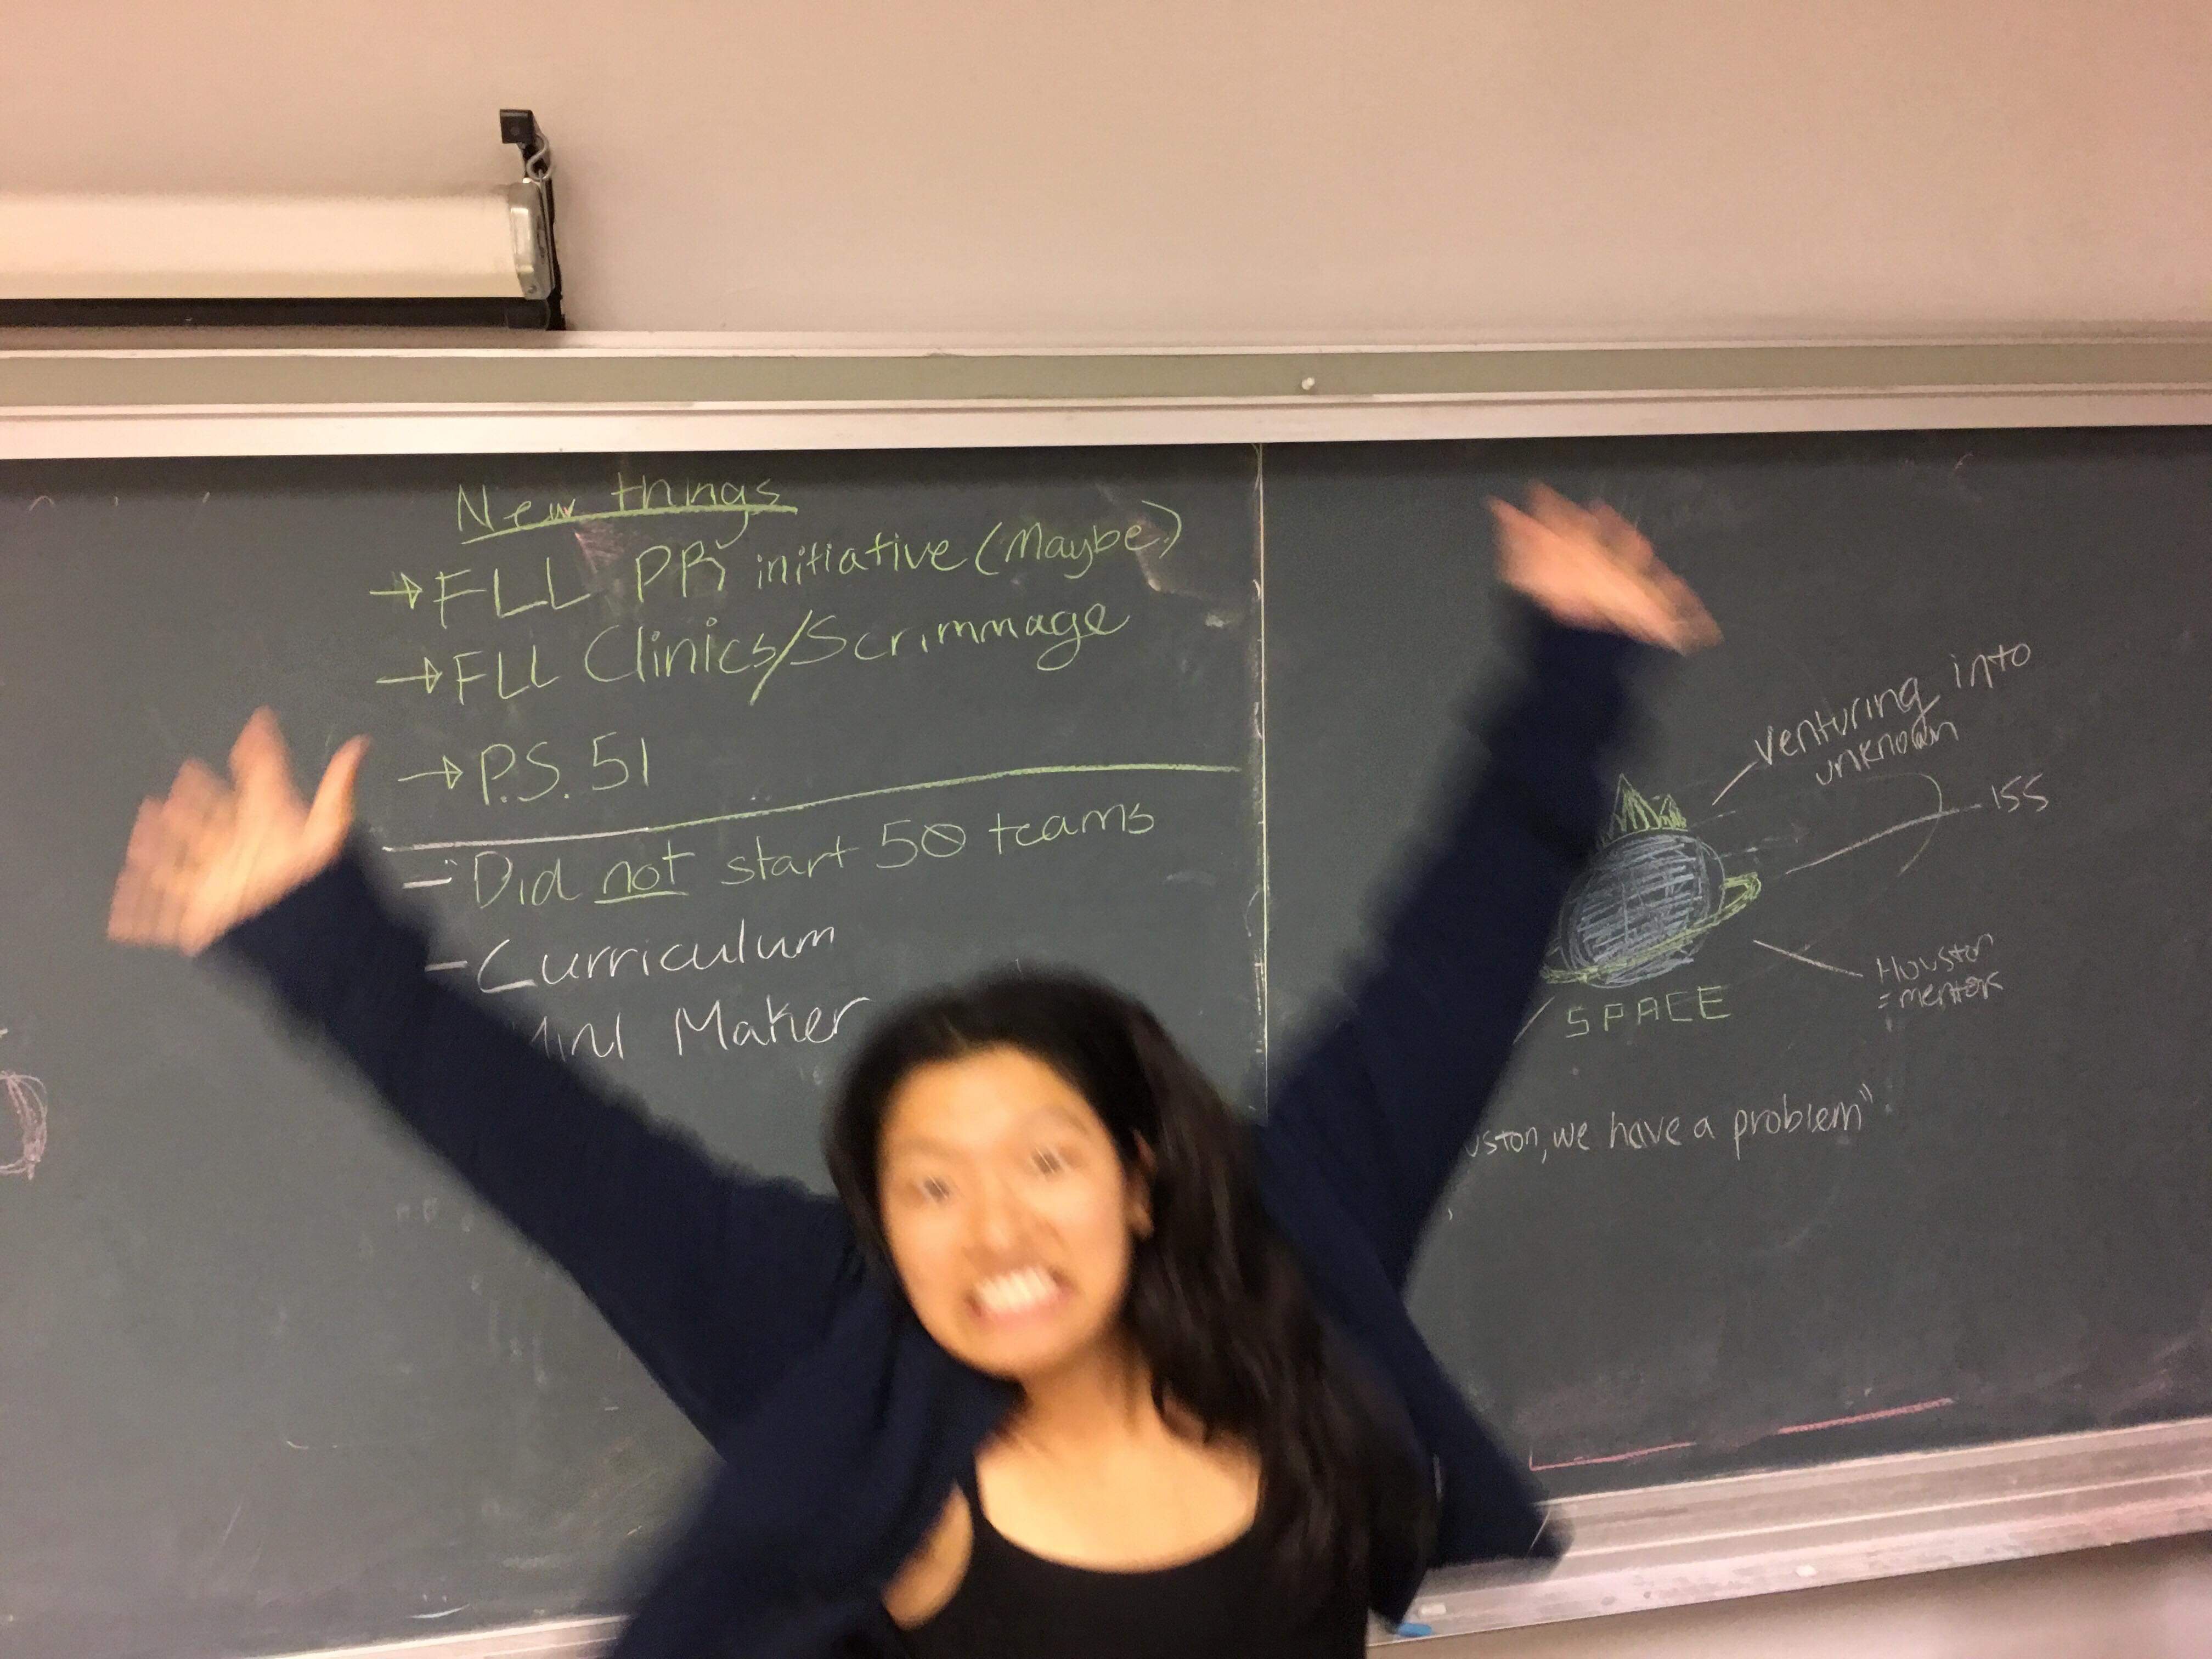 New things
→ FLL PR initiative (Maybe)
→ FLL Clinics/Scrimmage
→ P.S. 51
- Did not start 50 teams
- Curriculum
Maker
venturing into
unknown
ISS
Houston
= mentor
SPACE
we have a problem"